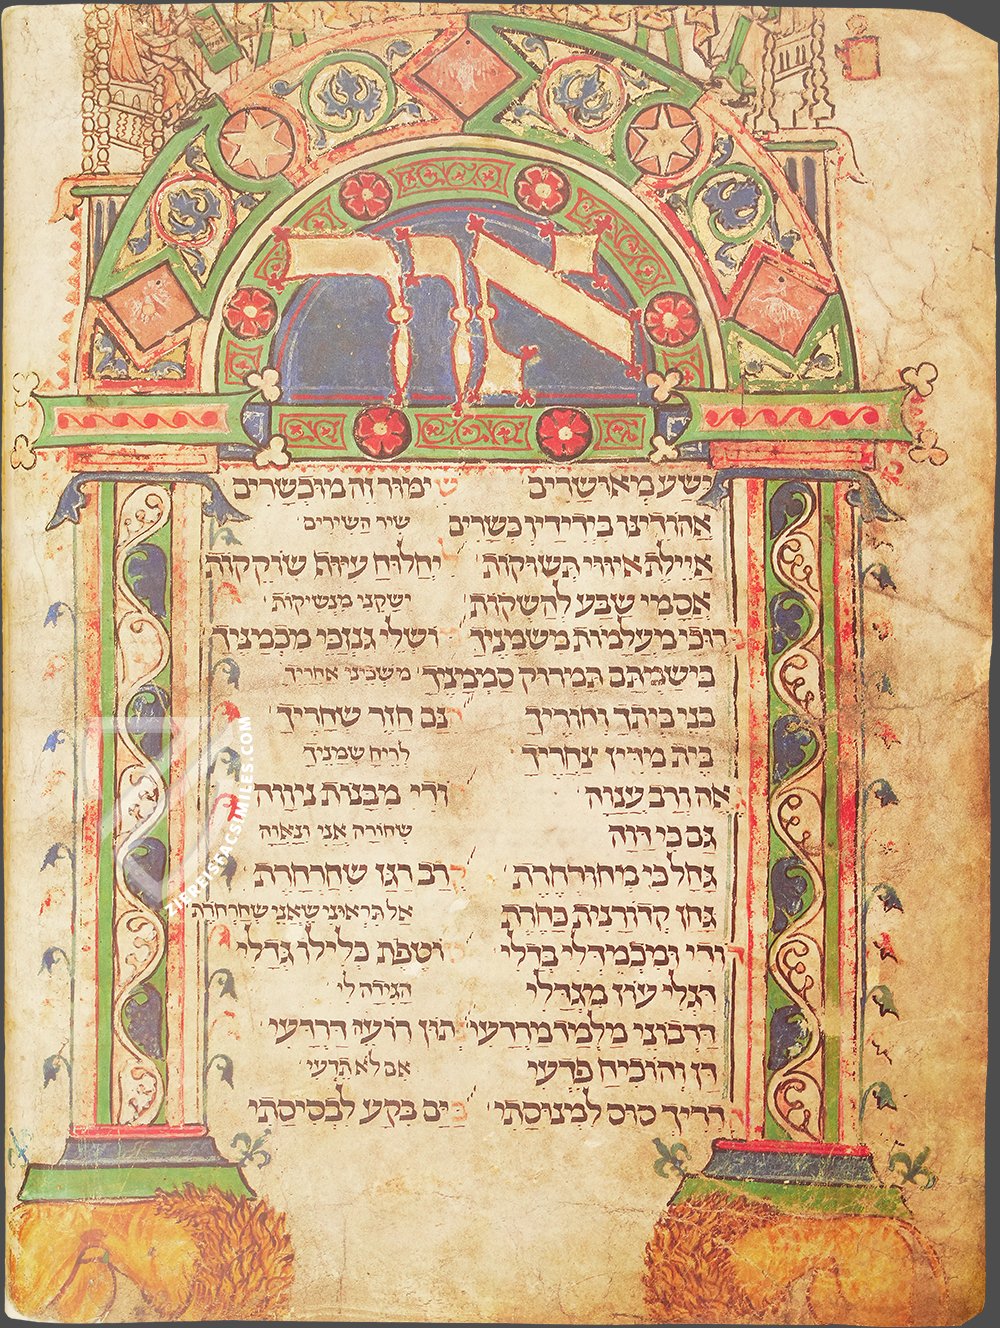 אור
ישע מאושרים שימור זה מוכשרים
אהודינו בידידין כשרים שיר השירים
איילת אזורי תשוקות יחלוח עיות שוקקות
אסמי שבע להשקות ישקני מנשיקות
רופי מעלמות משמניך ושולי גנזכי מכמניך
בישמתם תמרוק סממניך משכיני אחריך
בני ביתך וחוריך נם חדר שחריך
בית מדין צחריך לריח שמניך
אהה ורב ענוה ודי מבנות ניווה
גם כי דוה שחורה אני ונאוה
גחלכי מחורחרת קרב רגז שחרחרת
גחן קדורנית בחרת אל תיראוני שאני שחרחרת
ודי ומכמדלי בדלי וטפת כלילו גדלי
דגלי עוז מגדלי הגידה לי
דרבוני מלמד מרדעי תון רועה הרדעי
דן והוכיח פרעי אם לא תדעי
הדריך סוס למנוסתי בים בקע לבסיסתי
ZIEREISFACSIMILES.COM